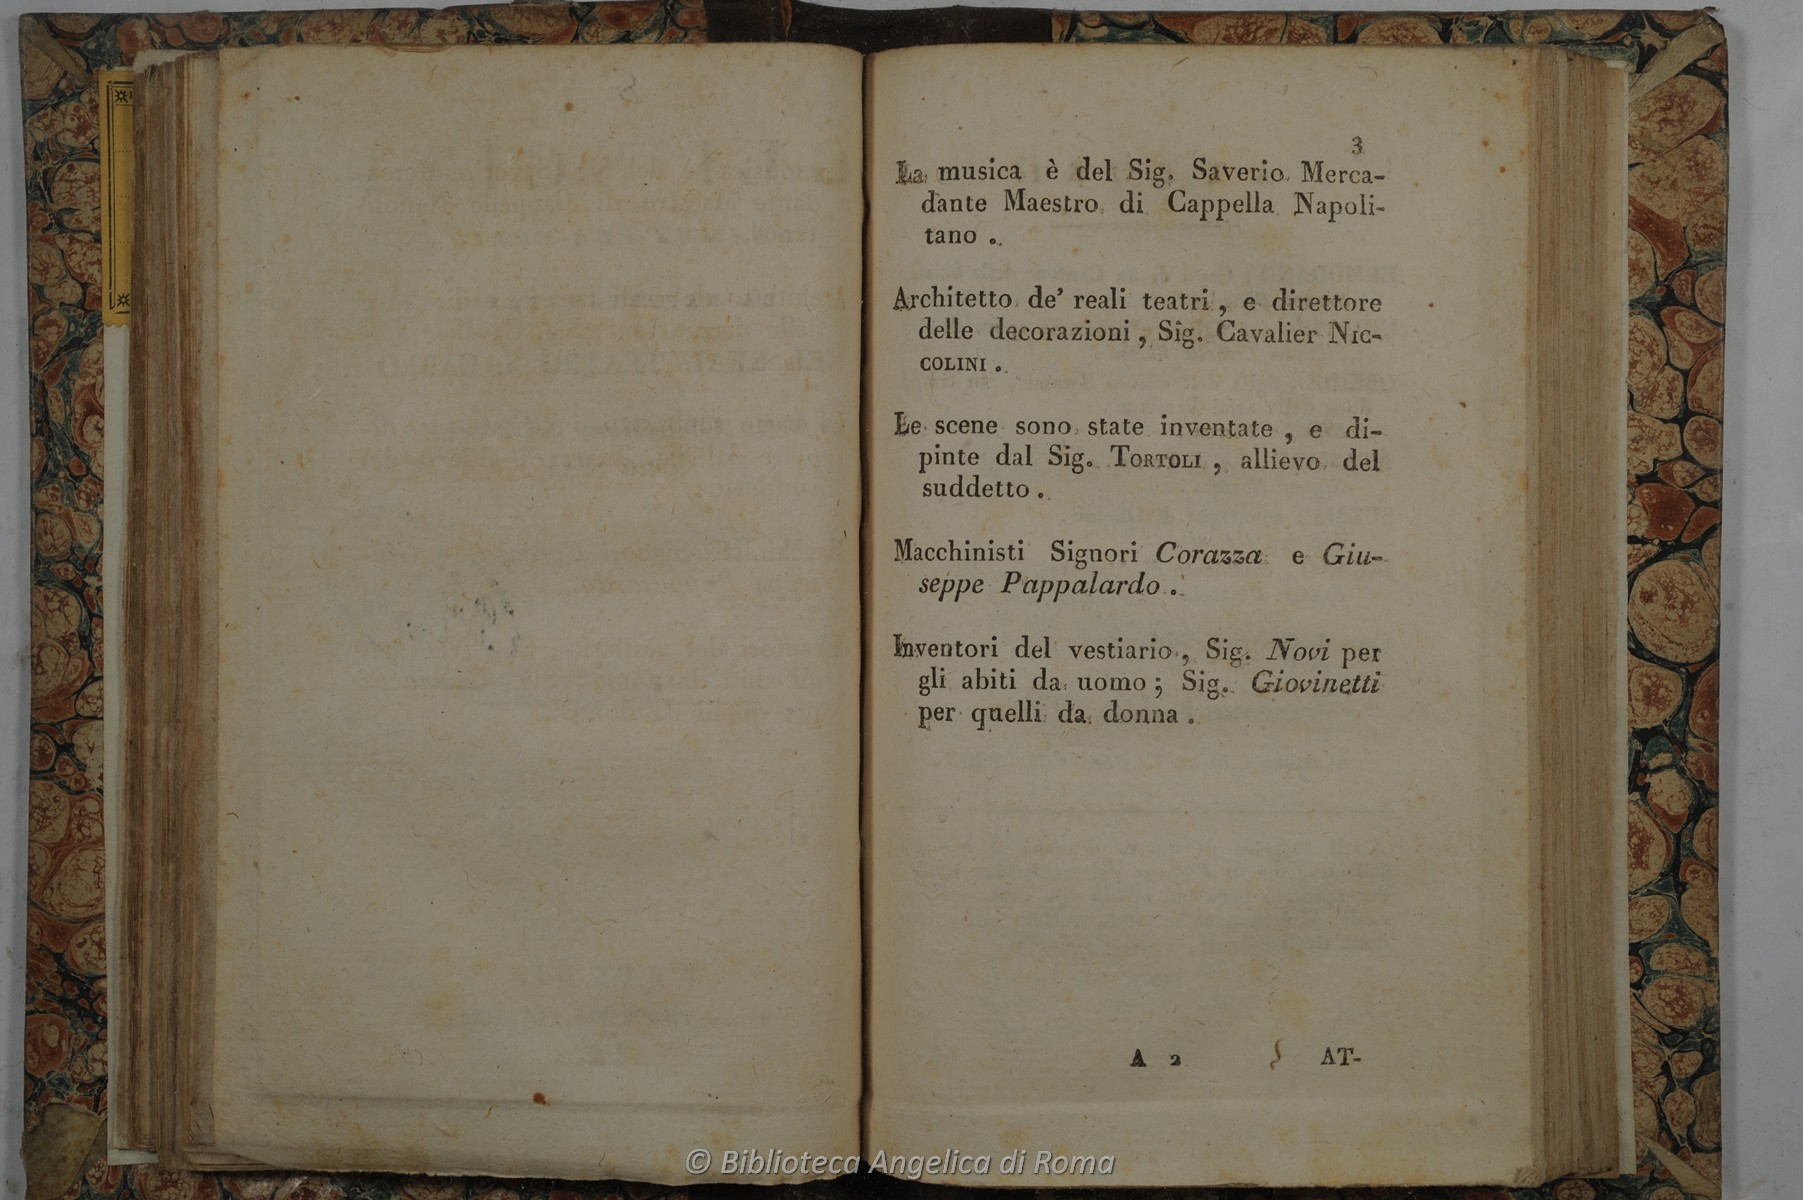 3
La musica è del Sig. Saverio Merca-
dante Maestro di Cappella Napoli-
tano .
Architetto de' reali teatri , e direttore
delle decorazioni , Sig. Cavalier Nic-
colini .
Le scene sono state inventate , e di-
pinte dal Sig. Tortoli , allievo del
suddetto .
Macchinisti Signori Corazza e Giu-
seppe Pappalardo .
Inventori del vestiario , Sig. Novi per
gli abiti da uomo ; Sig. Giovinetti
per quelli da donna .
A 2 AT-
© Biblioteca Angelica di Roma